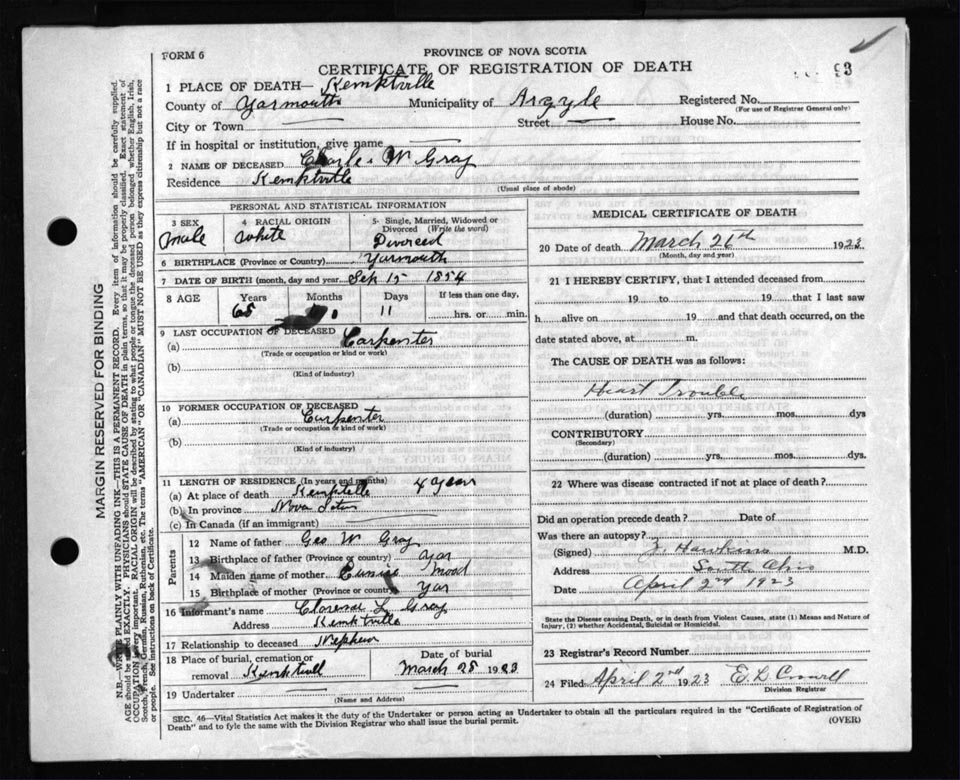 FORM 6
PROVINCE OF NOVA SCOTIA
CERTIFICATE OF REGISTRATION OF DEATH
93
1 PLACE OF DEATH— Kemktville
County of Yarmouth Municipality of Argyle Registered No.
(For use of Registrar General only)
City or Town Street House No.
If in hospital or institution, give name
2 NAME OF DECEASED Charles W Gray
Residence Kemktville
(Usual place of abode)
PERSONAL AND STATISTICAL INFORMATION
3 SEX 4 RACIAL ORIGIN 5 Single, Married, Widowed or Divorced (Write the word)
Male White Divorced
6 BIRTHPLACE (Province or Country) Yarmouth
7 DATE OF BIRTH (month, day and year) Sep 15 1854
8 AGE Years Months Days If less than one day,
68 11 hrs. or min.
9 LAST OCCUPATION OF DECEASED
(a) Carpenter
(Trade or occupation or kind or work)
(b)
(Kind of industry)
10 FORMER OCCUPATION OF DECEASED
(a) Carpenter
(Trade or occupation or kind of work)
(b)
(Kind of industry)
11 LENGTH OF RESIDENCE (In years and months)
(a) At place of death 4 years
(b) In province Nova
(c) In Canada (if an immigrant)
Parents
12 Name of father Geo W Gray
13 Birthplace of father (Province or country) Yar
14 Maiden name of mother Eunice Mood
15 Birthplace of mother (Province or country) Yar
16 Informant's name Clarence L Gray
Address Kemktville
17 Relationship to deceased Nephew
18 Place of burial, cremation or removal Kemktvill Date of burial March 28 1923
19 Undertaker
(Name and Address)
MEDICAL CERTIFICATE OF DEATH
20 Date of death March 26th 1923
(Month, day and year)
21 I HEREBY CERTIFY, that I attended deceased from
19 to 19 that I last saw
h alive on 19 and that death occurred, on the
date stated above, at m.
The CAUSE OF DEATH was as follows:
Heart Trouble
(duration) yrs. mos. dys
CONTRIBUTORY
(Secondary)
(duration) yrs. mos. dys.
22 Where was disease contracted if not at place of death?
Did an operation precede death? Date of
Was there an autopsy?
(Signed) J. Hawkins M.D.
Address South Ohio
Date April 2nd 1923
State the Disease causing Death, or in death from Violent Causes, state (1) Means and Nature of
Injury, (2) whether Accidental, Suicidal or Homicidal.
23 Registrar's Record Number
24 Filed April 2nd 1923 E. L. Crowell
Division Registrar
SEC. 46—Vital Statistics Act makes it the duty of the Undertaker or person acting as Undertaker to obtain all the particulars required in the "Certificate of Registration of
Death" and to fyle the same with the Division Registrar who shall issue the burial permit.
(OVER)
MARGIN RESERVED FOR BINDING
N.B.—WRITE PLAINLY WITH UNFADING INK.—THIS IS A PERMANENT RECORD. Every item of information should be carefully supplied.
AGE should be stated EXACTLY. PHYSICIANS should STATE CAUSE OF DEATH in plain terms, so that it may be properly classified. Exact statement of
OCCUPATION is very important. RACIAL ORIGIN will be described by stating to what people or tongue the deceased person belonged whether English, Irish,
Scotch, French, German, Russian, Ruthenian, etc. The terms "AMERICAN" OR "CANADIAN" MUST NOT BE USED as they express citizenship but not a race
or people. See instructions on back of Certificate.